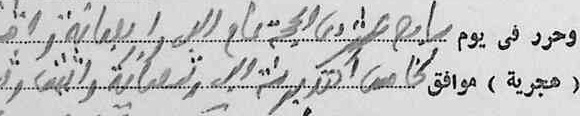 وحرر فى يوم سابع عشر ذى الحجة عام الف واربعمائة
( هجرية ) موافق خامس اكتوبر سنة الف وتسعمائة واثنين